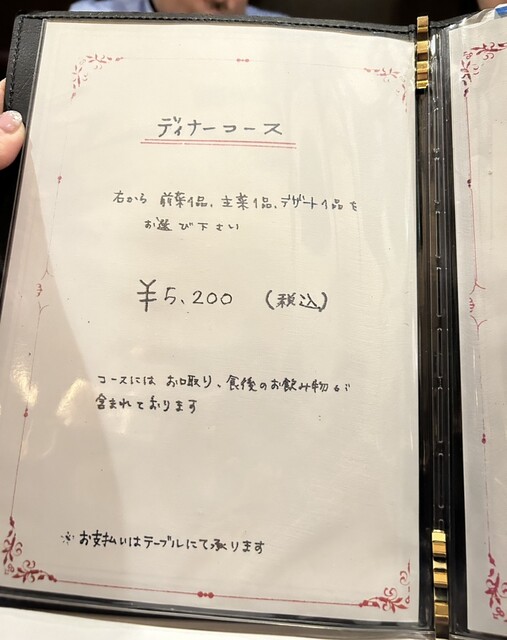 ディナーコース
右から 前菜1品、主菜1品、デザート1品を
お選び下さい
¥5,200 (税込)
コースには お口取り、食後のお飲み物が
含まれております
※お支払いはテーブルにて承ります